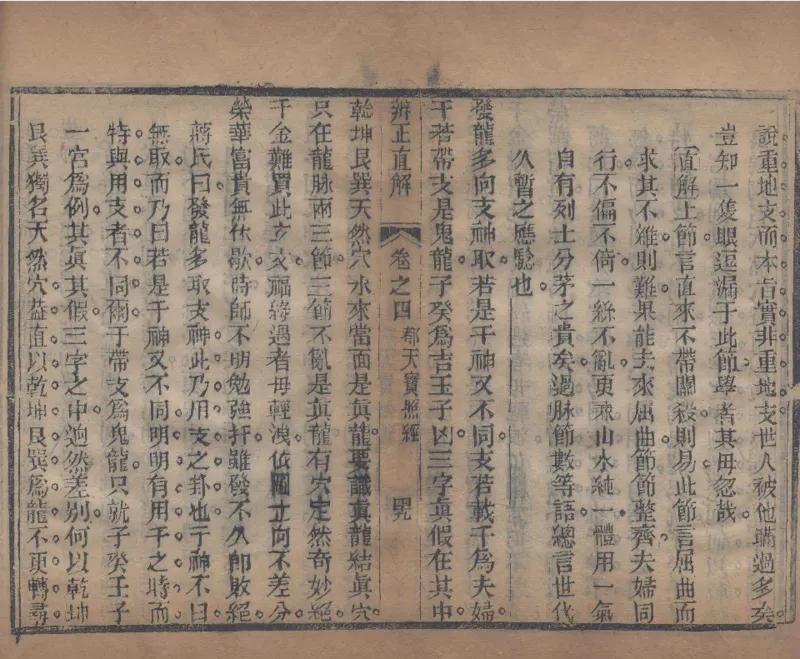 說重地支而本旨實非重地支世人被他瞞過多矣
豈知一隻眼逗漏于此節學者其毋忽哉
直解上節言直來不帶關殺則易此節言屈曲而
求其不雜則難果能去來屈曲節節整齊夫婦同
行不偏不倚一絲不亂更乘山水純一體用一氣
自有列士分茅之貴矣過脉節數等語總言世代
久暫之應驗也
發龍多向支神取若是干神又不同支若載干爲夫婦
干若帶支是鬼龍子癸爲吉壬子凶三字真假在其中
辨正直解
卷之四
都天寶照經
乾坤艮巽天然穴水來當面是真龍要識真龍結真穴
只在龍脉兩三節三節不亂是真龍有穴定然奇妙絕
千金難買此立文福緣遇者毋輕洩依圖立向不差分
榮華富貴無休歇時師不明勉強扦雖發不久即敗絕
蔣氏曰發龍多取支神此乃用支之卦也干神不曰
無取而乃曰若是干神又不同明明有用干之時而
特與用支者不同爾于帶支爲鬼龍只就子癸壬子
一宮爲例其真其假三字之中迥然差別何以乾坤
艮巽獨名天然穴葢直以乾坤艮巽爲龍不更轉尋